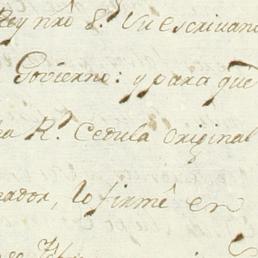 Rey nrô S.r Un escrivano
Govierno: y para que
R.l Cedula original
ador, lo firmé en